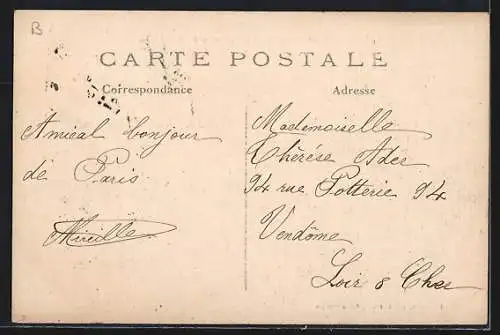 B
CARTE POSTALE
Correspondance
Adresse
Amical bonjour
de Paris
Mireille
Mademoiselle
Thérése Adee
94 rue Potterie 94
Vendôme
Loir & Cher